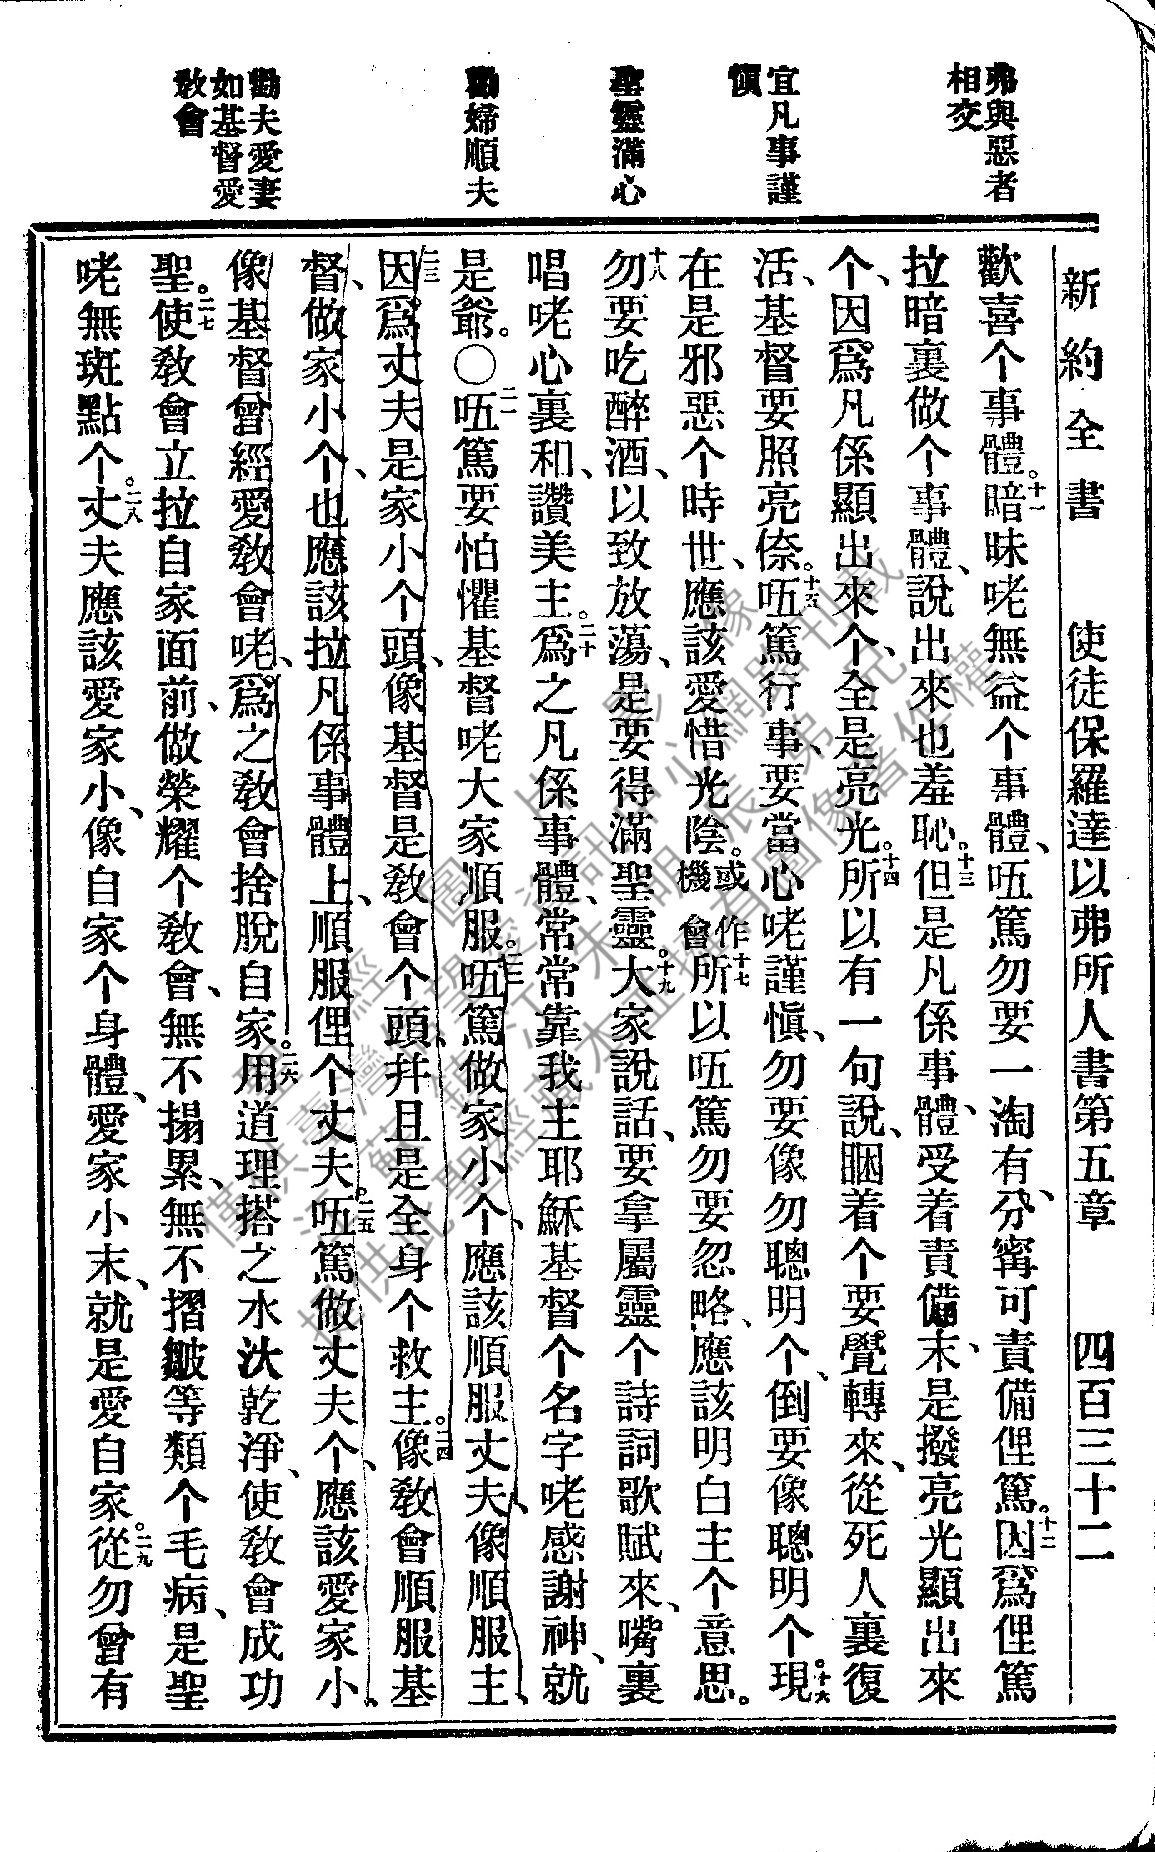 弗與惡者
相交
宜凡事謹
慎
聖靈滿心
勸婦順夫
勸夫愛妻
如基督愛
敎會
新約全書 使徒保羅達以弗所人書第五章 四百三十二
歡喜个事體。十一暗昧咾無益个事體、㕶篤勿要一淘有分、甯可責備俚篤。十二因爲俚篤
拉暗裏做个事體、說出來也羞恥。十三但是凡係事體、受着責備末、是撥亮光顯出來
个、因爲凡係顯出來个、全是亮光。十四所以有一句說、睏着个要覺轉來、從死人裏復
活、基督要照亮倷。十五㕶篤行事、要當心咾謹慎、勿要像勿聰明个、倒要像聰明个現。十六
在是邪惡个時世、應該愛惜光陰。或作機會十七所以㕶篤勿要忽略、應該明白主个意思。
十八勿要吃醉酒、以致放蕩、是要得滿聖靈。十九大家說話、要拿屬靈个詩詞歌賦來、嘴裏
唱咾心裏和、讚美主。二十爲之凡係事體、常常靠我主耶穌基督个名字咾感謝神、就
是爺。○二一㕶篤要怕懼基督咾大家順服。二二㕶篤做家小个、應該順服丈夫、像順服主、
二三因爲丈夫是家小个頭、像基督是敎會个頭、幷且是全身个救主。二四像敎會順服基
督、做家小个、也應該拉凡係事體上、順服俚个丈夫。二五㕶篤做丈夫个、應該愛家小、
像基督曾經愛敎會咾、爲之敎會捨脫自家。二六用道理搭之水汏乾淨、使敎會成功
聖。二七使敎會立拉自家面前、做榮耀个敎會、無不搨累、無不摺皺等類个毛病、是聖
咾無斑點个。二八丈夫應該愛家小、像自家个身體、愛家小末、就是愛自家。二九從勿曾有